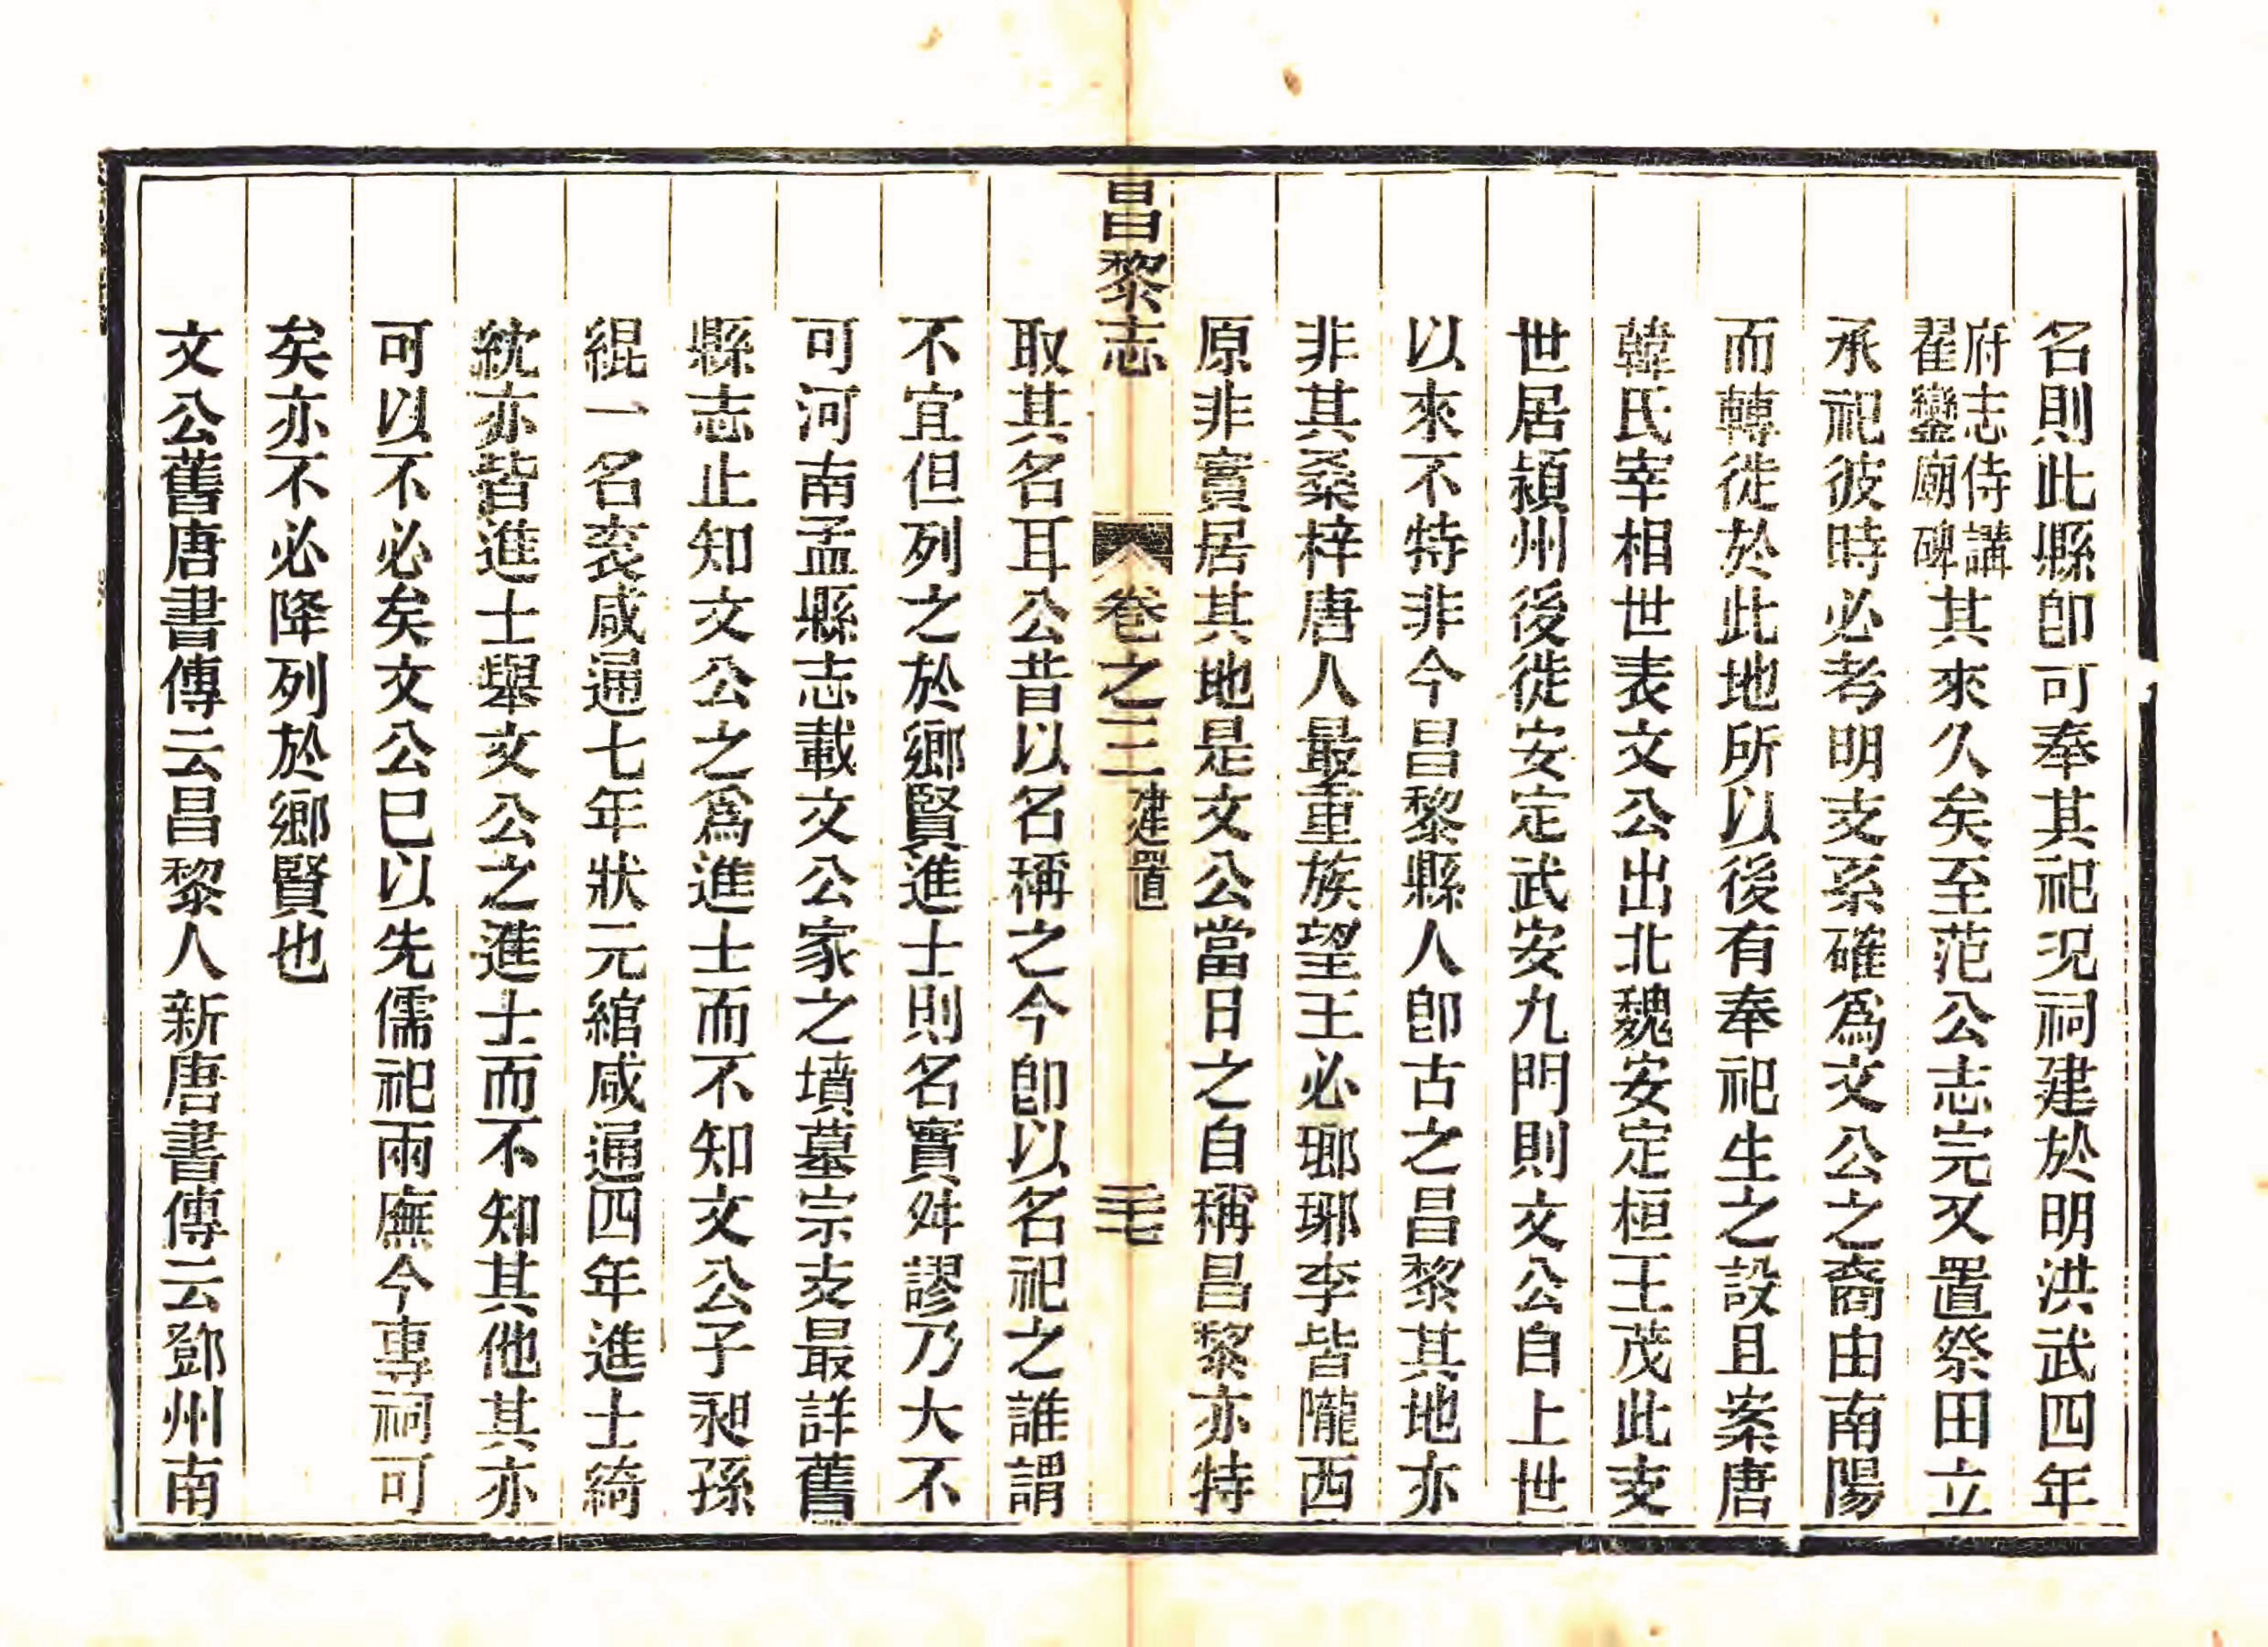 名則此縣卽可奉其祀況祠建於明洪武四年
府志侍講
翟鑾廟碑
其來久矣至范公志完又置祭田立
承祀彼時必考明支系確爲文公之裔由南陽
而轉徙於此地所以後有奉祀生之設且案唐
韓氏宰相世表文公出北魏安定桓王茂此支
世居潁州後徙安定武安九門則文公自上世
以來不特非今昌黎縣人卽古之昌黎其地亦
非其桑梓唐人最重族望王必瑯琊李皆隴西
原非實居其地是文公當日之自稱昌黎亦特
昌黎志 卷之三 建置 毛
取其名耳公昔以名稱之今卽以名祀之誰謂
不宜但列之於鄉賢進士則名實舛謬乃大不
可河南孟縣志載文公家之墳墓宗支最詳舊
縣志止知文公之爲進士而不知文公子昶孫
緄一名衮咸通七年狀元綰咸通四年進士綺
紞亦皆進士舉文公之進士而不知其他其亦
可以不必矣文公已以先儒祀兩廡今專祠可
矣亦不必降列於鄉賢也
文公舊唐書傳云昌黎人新唐書傳云鄧州南